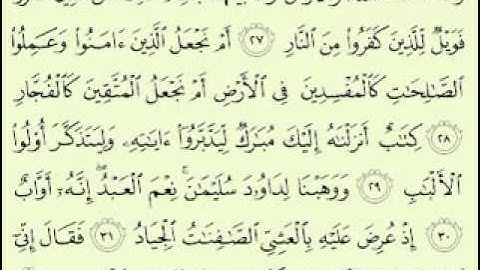 فَوَيْلٌ لِّلَّذِينَ كَفَرُوا۟ مِنَ ٱلنَّارِ ٢٧ أَمْ نَجْعَلُ ٱلَّذِينَ ءَامَنُوا۟ وَعَمِلُوا۟
ٱلصَّٰلِحَٰتِ كَٱلْمُفْسِدِينَ فِى ٱلْأَرْضِ أَمْ نَجْعَلُ ٱلْمُتَّقِينَ كَٱلْفُجَّارِ
٢٨ كِتَٰبٌ أَنزَلْنَٰهُ إِلَيْكَ مُبَٰرَكٌ لِّيَدَّبَّرُوٓا۟ ءَايَٰتِهِۦ وَلِيَتَذَكَّرَ أُو۟لُوا۟
ٱلْأَلْبَٰبِ ٢٩ وَوَهَبْنَا لِدَاوُۥدَ سُلَيْمَٰنَ ۚ نِعْمَ ٱلْعَبْدُ ۖ إِنَّهُۥٓ أَوَّابٌ
٣٠ إِذْ عُرِضَ عَلَيْهِ بِٱلْعَشِىِّ ٱلصَّٰفِنَٰتُ ٱلْجِيَادُ ٣١ فَقَالَ إِنِّىٓ